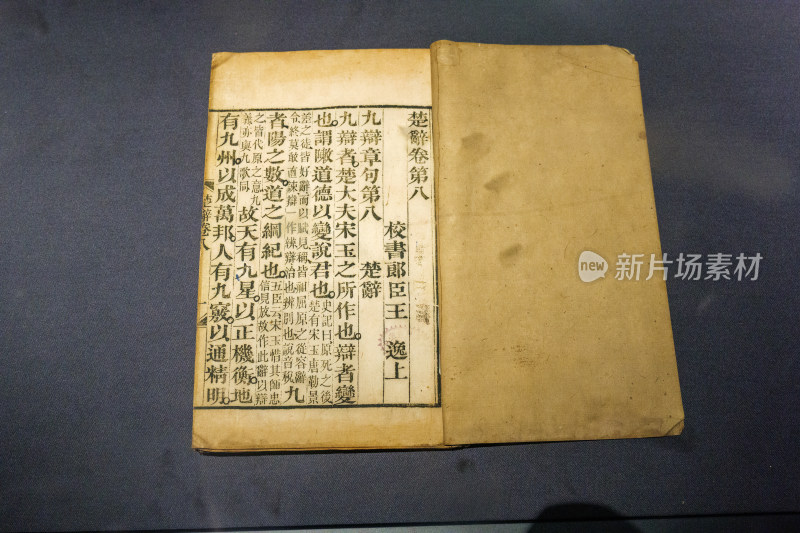 楚辭卷第八
校書郎臣王 逸上
九辯章句第八 楚辭
九辯者楚大夫宋玉之所作也辯者變
也謂敶道德以變說君也史記曰原死之後楚有宋玉唐勒景
差之徒皆好辭而以賦見稱皆祖屈原之從容辭令終莫敢直諫辯一作辨辯治也辨別也說音稅九
者陽之數道之綱紀也五臣云宋玉惜其師忠信見放故作此辭以辯
之皆代原之意九義亦與九歌同故天有九星以正機衡地
有九州以成萬邦人有九竅以通精明
楚辭卷八
new 新摄视觉